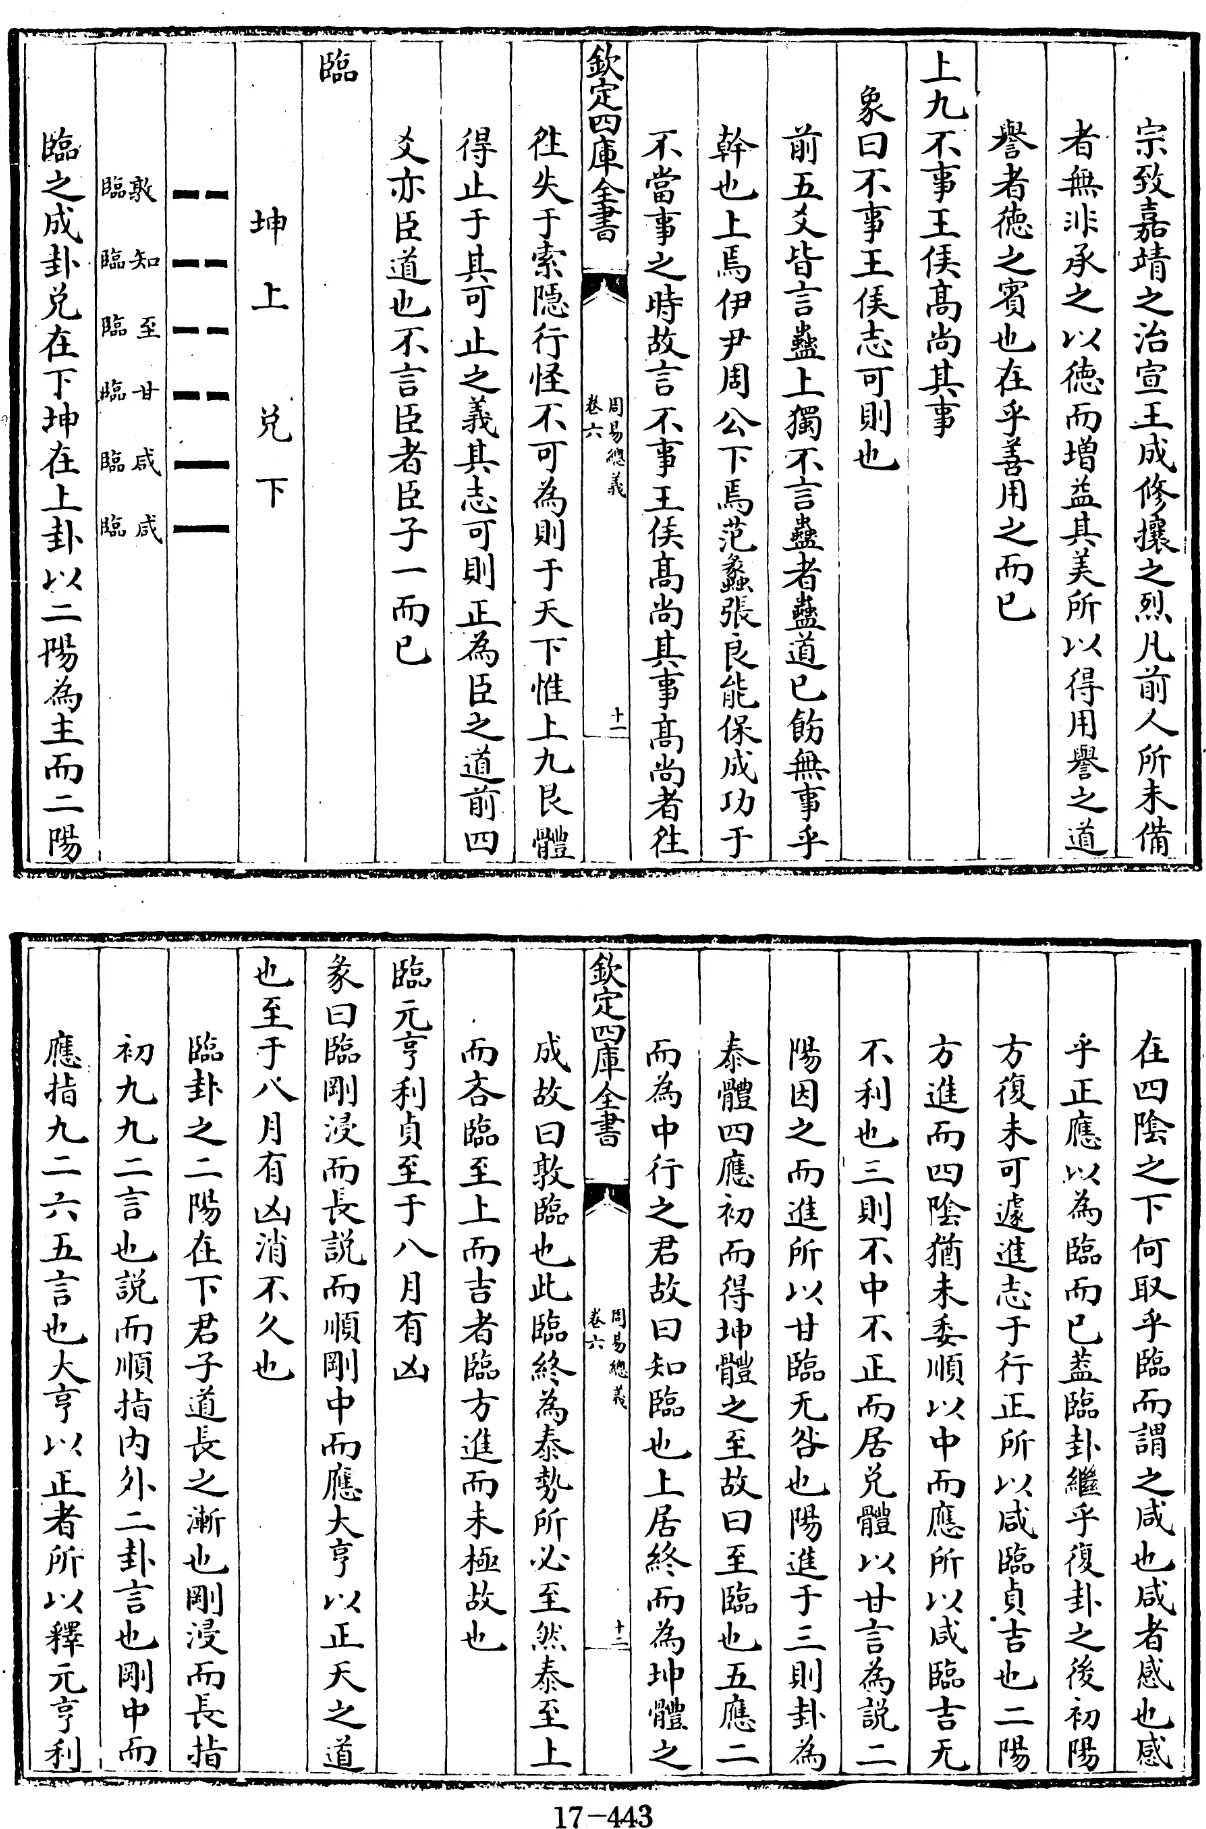 宗致嘉靖之治宣王成修攘之烈凡前人所未備
者無非承之以徳而増益其美所以得用譽之道
譽者徳之賓也在乎善用之而已
上九不事王侯髙尚其事
象曰不事王侯志可則也
前五爻皆言蠱上獨不言蠱者蠱道已飭無事乎
幹也上焉伊尹周公下焉范蠡張良能保成功于
不當事之時故言不事王侯髙尚其事髙尚者徃
欽定四庫全書
周易總義
卷六
十一
徃失于索隱行怪不可為則于天下惟上九艮體
得止于其可止之義其志可則正為臣之道前四
爻亦臣道也不言臣者臣子一而已
臨
坤上兑下
敦臨
知臨
至臨
甘臨
咸臨
咸臨
臨之成卦兑在下坤在上卦以二陽為主而二陽
在四隂之下何取乎臨而謂之咸也咸者感也感
乎正應以為臨而已葢臨卦繼乎復卦之後初陽
方復未可遽進志于行正所以咸臨貞吉也二陽
方進而四隂猶未委順以中而應所以咸臨吉无
不利也三則不中不正而居兑體以甘言為説二
陽因之而進所以甘臨无咎也陽進于三則卦為
泰體四應初而得坤體之至故曰至臨也五應二
而為中行之君故曰知臨也上居終而為坤體之
欽定四庫全書
周易總義
卷六
十二
成故曰敦臨也此臨終為泰勢所必至然泰至上
而吝臨至上而吉者臨方進而未極故也
臨元亨利貞至于八月有凶
彖曰臨剛浸而長説而順剛中而應大亨以正天之道
也至于八月有凶消不久也
臨卦之二陽在下君子道長之漸也剛浸而長指
初九九二言也説而順指内外二卦言也剛中而
應指九二六五言也大亨以正者所以釋元亨利
17-443